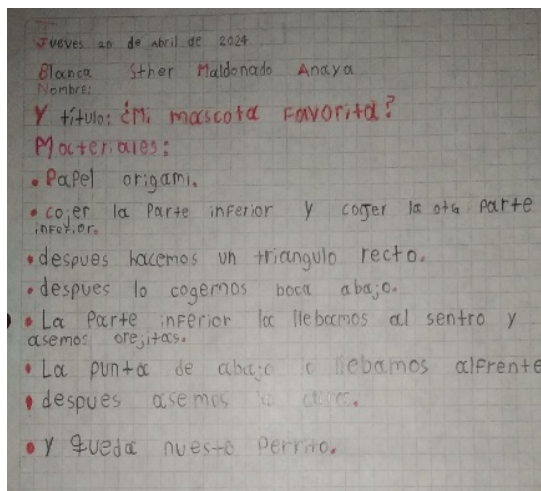 Jueves 20 de abril de 2024
Blanca Sther Maldonado Anaya
Nombre:
Y título: ¿Mi mascota Favorita?
Materiales:
• Papel origami.
• cojer la Parte inferior y coger la ota Parte
inferior.
• despues hacemos un triangulo recto.
• despues lo cogemos boca abajo.
• La Parte inferior la llebamos al sentro y
asemos orejitas.
• La punta de abajo la llebamos alfrente
• despues asemos la cara.
• y queda nuesto Perrito.